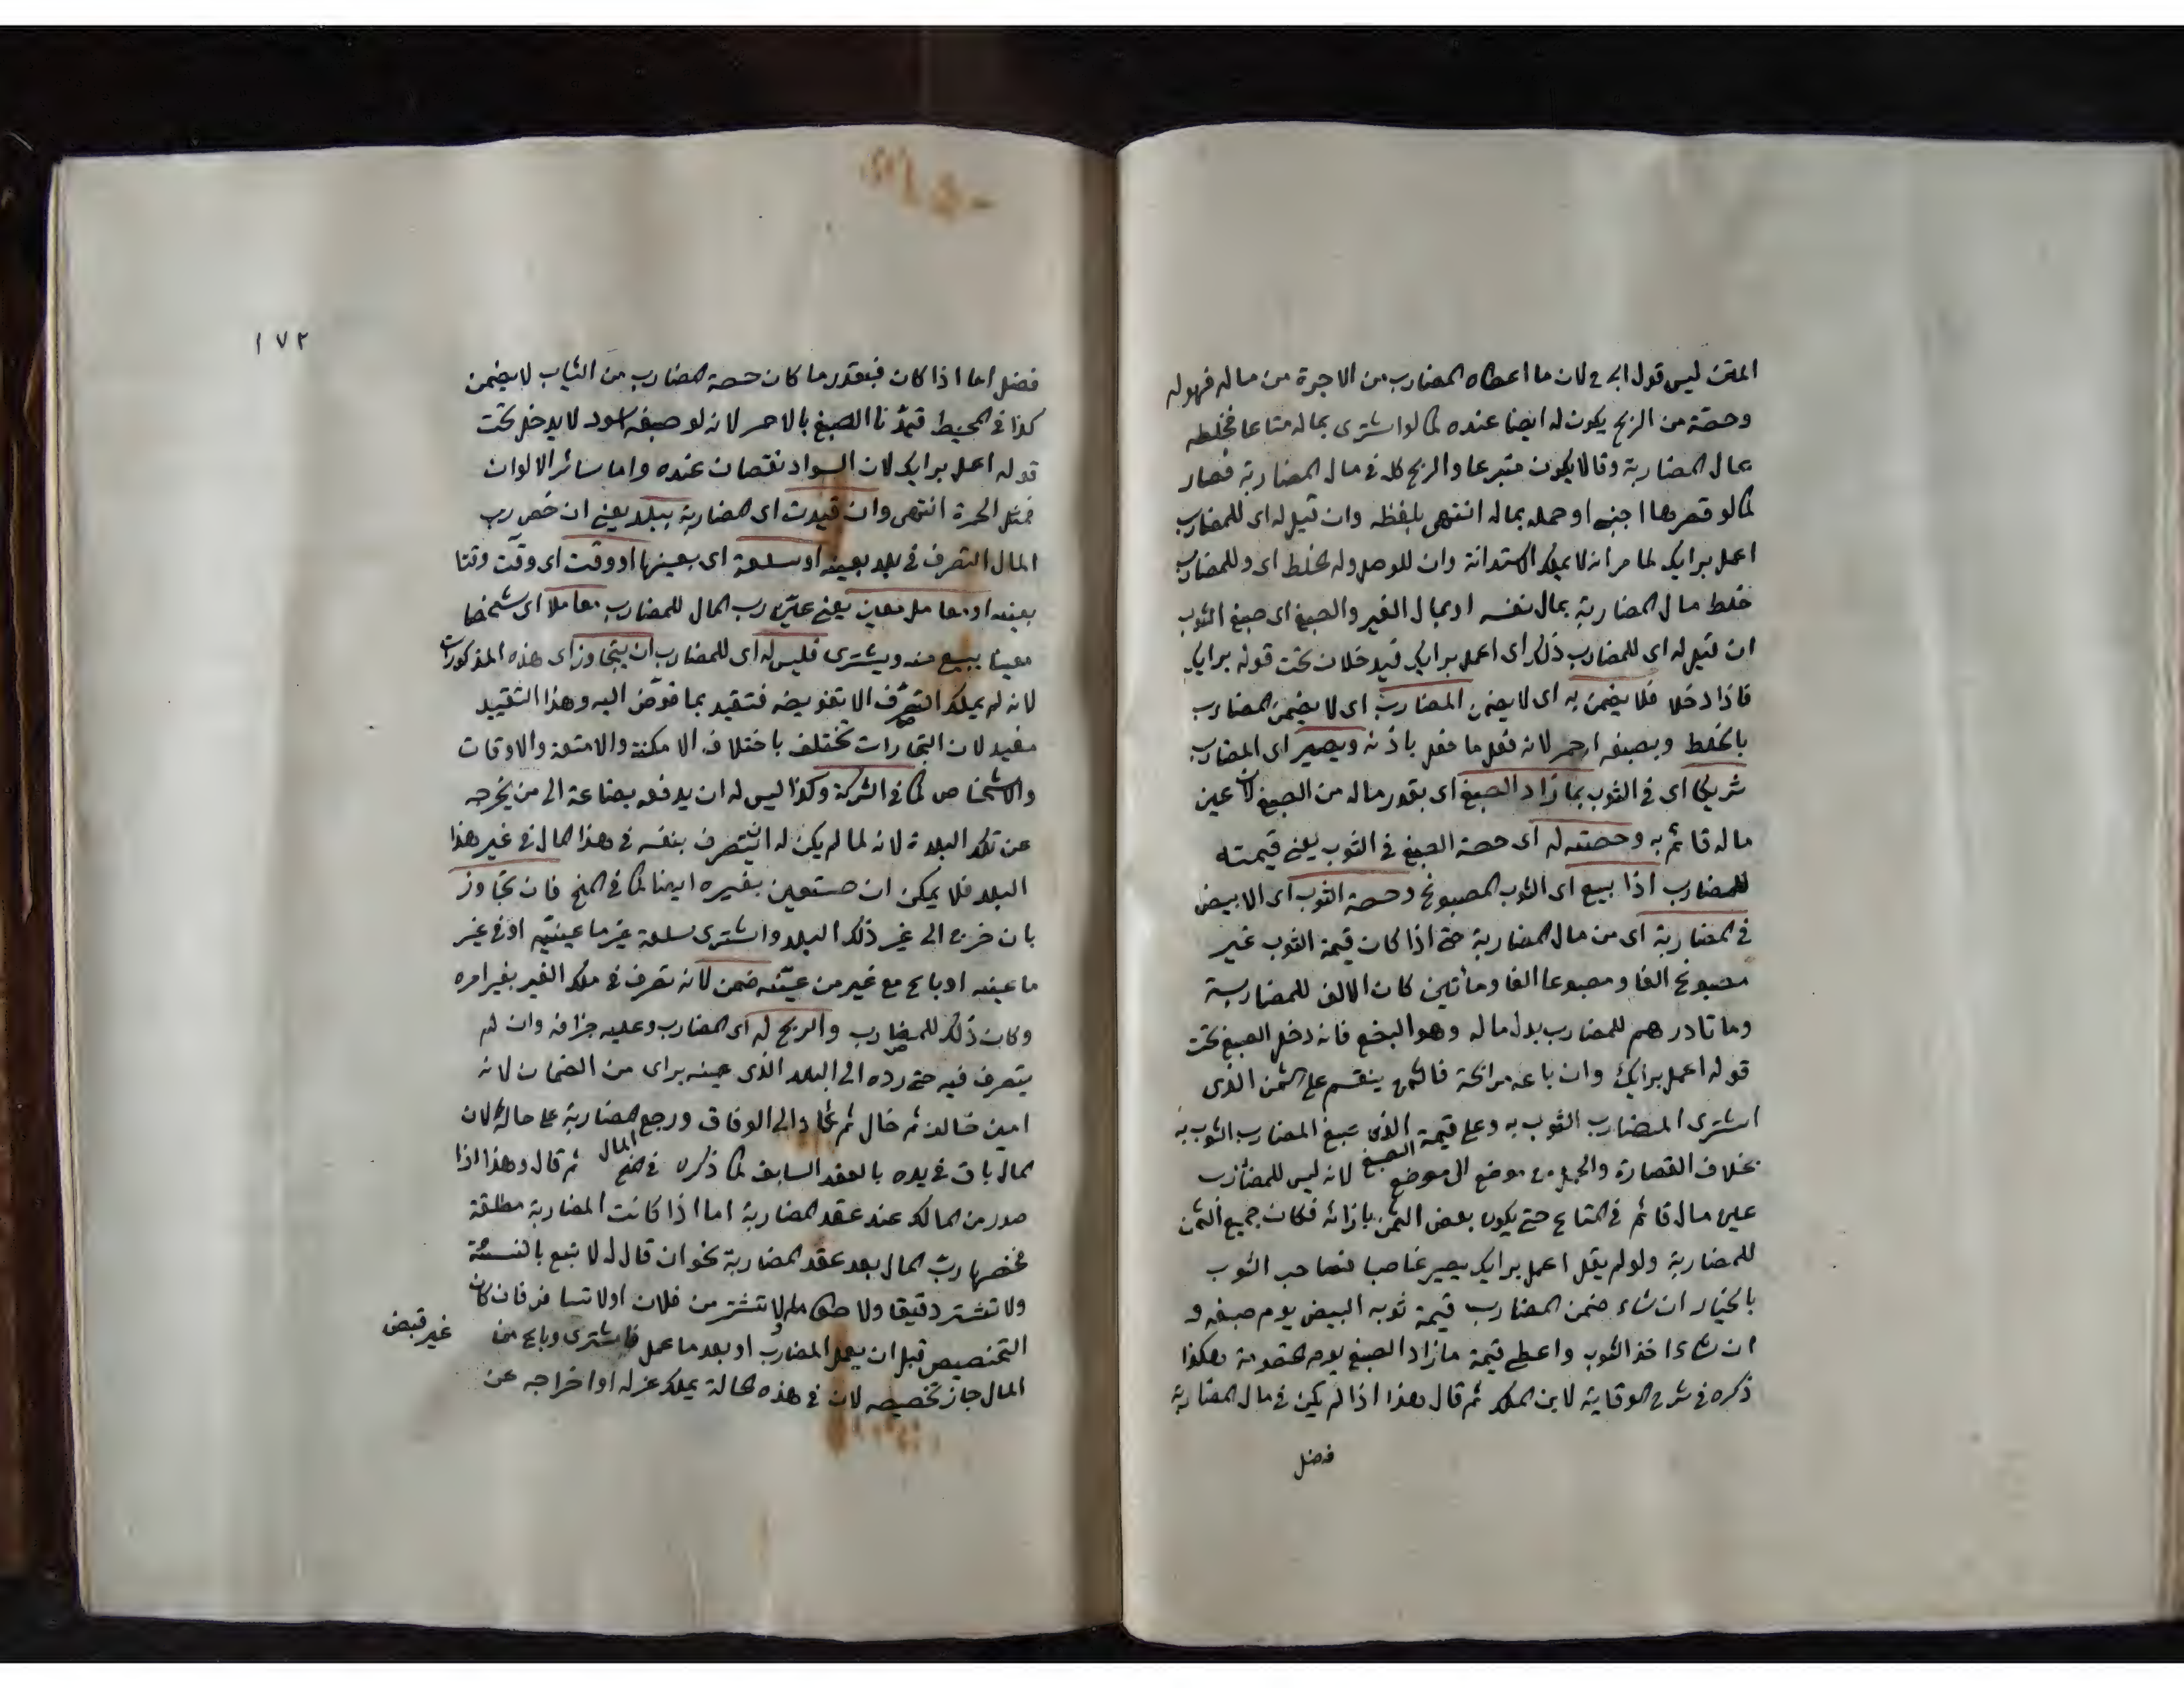 المتن ليس قول ابى ح لان ما اعطاه المضارب من الاجرة من ماله فهو له
وحصته من الربح يكون له ايضا عنده كما لو اشترى بماله متاعا فخلطه
بمال المضاربة وقالا يكون متبرعا والربح كله فى مال المضاربة فصار
كما لو قصرها اجنبى او حمله بماله انتهى بلفظه وان قيل له اى للمضارب
اعمل برايك لما مر انه لا يملك الاستدانة وان للوصل وله الخلط اى وللمضارب
خلط مال المضاربة بمال نفسه او بمال الغير والصبغ اى صبغ الثوب
ان قيل له اى للمضارب ذلك اى اعمل برايك فيدخلان تحت قوله برايك
فاذا دخلا فلا يضمن به اى لا يضمن المضارب اى لا يضمن المضارب
بالخلط وبصبغه احمر لانه فعل ما فعل باذنه ويصير اى المضارب
شريكا اى فى الثوب بما زاد الصبغ اى بقدر ماله من الصبغ لان عين
ماله قائم به وحصته له اى حصة الصبغ فى الثوب يعنى قيمته
للمضارب اذا بيع اى الثوب المصبوغ وحصة الثوب اى الابيض
فى المضاربة اى من مال المضاربة حتى اذا كان قيمة الثوب غير
مصبوغ الفا ومصبوغا الفا ومأتين كان الالف للمضاربة
ومأتا درهم للمضارب بدل ماله وهو الصبغ فانه دخل الصبغ تحت
قوله اعمل برايك وان باعه مرابحة فالثمن ينقسم على الثمن الذى
اشترى المضارب الثوب به وعلى قيمة الصبغ الذى صبغ المضارب الثوب به
بخلاف القصارة والحمل من موضع الى موضع لانه ليس للمضارب
عين مال قائم فى المتاع حتى يكون بعض الثمن بازائه فكان جميع الثمن
للمضاربة ولو لم يقل اعمل برايك يصير غاصبا فصاحب الثوب
بالخيار ان شاء ضمن المضارب قيمة ثوبه البيض يوم صبغه و
ان شاء اخذ الثوب واعطى قيمة ما زاد الصبغ يوم الخصومة هكذا
ذكره فى شرح الوقاية لابن الملك ثم قال هذا اذا لم يكن فى مال المضاربة
فضل
١٧٢
فضل اما اذا كان فبقدر ما كان حصة المضارب من الثياب لا يضمن
كذا فى المحيط قيدنا الصبغ بالاحمر لانه لو صبغه اسود لا يدخل تحت
قوله اعمل برايك لان السواد نقصان عنده واما سائر الالوان
فمثل الحمرة انتهى وان قيدت اى المضاربة ببلد يعنى ان خص رب
المال التصرف فى بلد بعينه او سلعة اى بعينها او وقت اى وقت وقتا
بعينه او معامل معين يعنى عين رب المال للمضارب معاملا اى شخصا
معينا يبيع منه ويشترى فليس له اى للمضارب ان يتجاوز اى هذه المذكورات
لانه لم يملك التصرف الا بتفويضه فتقيد بما فوض اليه وهذا التقييد
مفيد لان التجارات تختلف باختلاف الامكنة والامتعة والاوقات
والاشخاص كما فى الشركة وكذا ليس له ان يدفعه بضاعة الى من يخرجه
عن تلك البلدة لانه لما لم يكن له ان يتصرف بنفسه فى هذا المال فى غير هذا
البلد فلا يمكن ان يستعين بغيره ايضا كما فى المنح فان تجاوز
بان خرج الى غير ذلك البلد واشترى سلعة غير ما عينه او فى غير
ما عينه او بايع مع غير من عينه ضمن لانه تصرف فى ملك الغير بغير امره
وكان ذلك للمضارب والربح له اى المضارب وعليه خسرانه وان لم
يتصرف فيه حتى رده الى البلد الذى عينه برأ من الضمان لانه
امين خالف ثم عاد الى الوفاق ورجع المضاربة على حاله لان
المال باق فى يده بالعقد السابق كما ذكره فى المنح ثم قال وهذا اذا
صدر من المالك عند عقد المضاربة اما اذا كانت المضاربة مطلقة
فخصها رب المال بعد عقد المضاربة نحو ان قال له لا تبع بالنسئة
ولا تشتر دقيقا ولا طعاما ولا تشتر من فلان او لا تسافر فان كان
التخصيص قبل ان يعمل المضارب او بعد ما عمل فاشترى وباع من غير قبض
المال جاز تخصيصه لان فى هذه الحالة يملك عزله او اخراجه عن